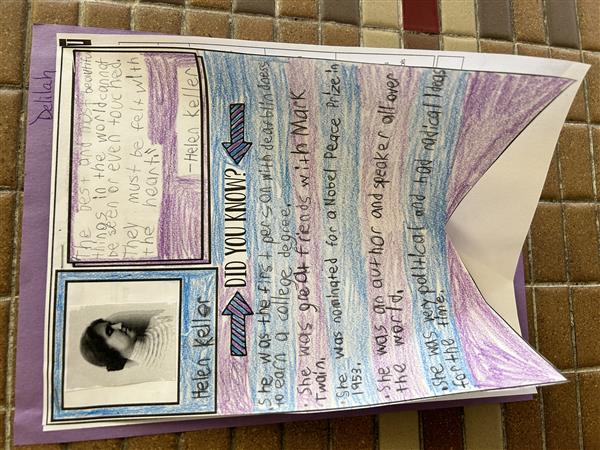 Delilah
Helen Keller
The best and most beautiful
things in the world cannot
be seen or even touched.
They must be felt with
the heart."
-Helen Keller
DID YOU KNOW?
• She was the first person with deafblindness
to earn a college degree.
• She was great friends with Mark
Twain.
• She was nominated for a Nobel Peace Prize in
1953.
• She was an author and speaker all over
the world.
• She was very political and had radical ideas
for the time.